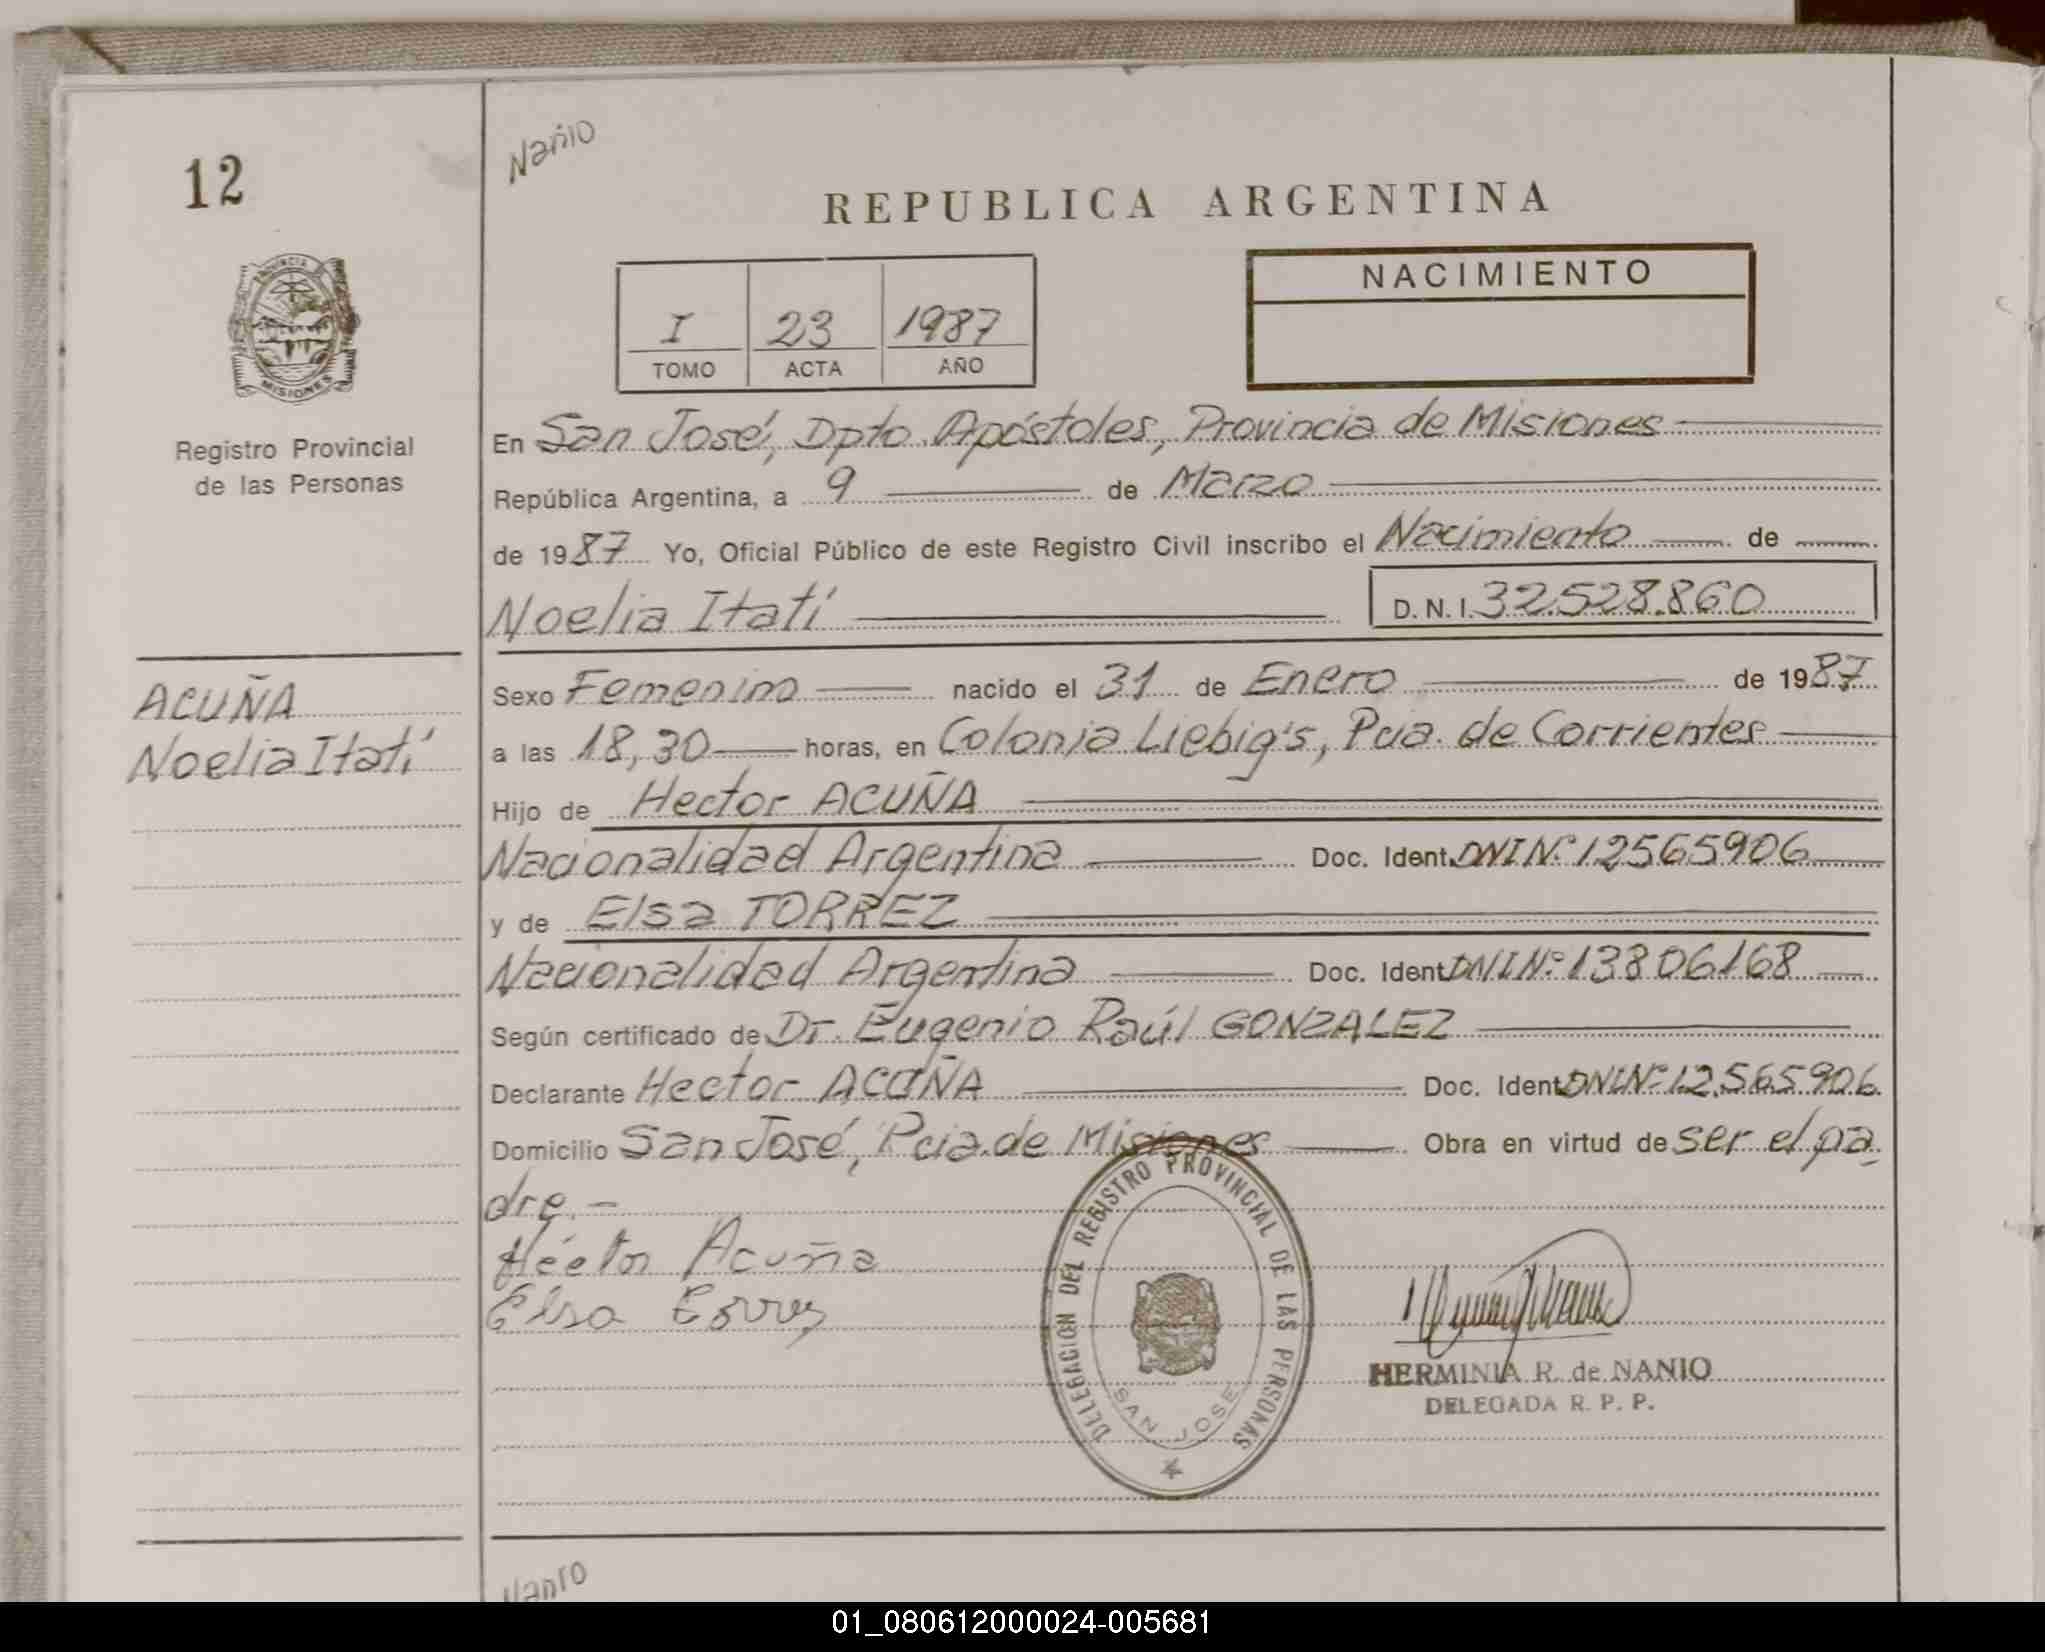 12
Nanio
REPUBLICA ARGENTINA
PROVINCIA
MISIONES
Registro Provincial
de las Personas
I 23 1987
TOMO ACTA AÑO
NACIMIENTO
En San José, Dpto Apóstoles, Provincia de Misiones
República Argentina, a 9 de Marzo
de 1987 Yo, Oficial Público de este Registro Civil inscribo el Nacimiento de
Noelia Itatí D.N.I. 32.528.860
ACUÑA
Noelia Itatí
Sexo Femenino nacido el 31 de Enero de 1987
a las 18,30 horas, en Colonia Liebig's, Pcia. de Corrientes
Hijo de Hector ACUÑA
Nacionalidad Argentina Doc. Ident. DNI Nº 12565906
y de Elsa TORREZ
Nacionalidad Argentina Doc. Ident DNI Nº 13806168
Según certificado de Dr. Eugenio Raúl GONZALEZ
Declarante Hector ACUÑA Doc. Ident DNI Nº 12.565.906
Domicilio San José, Pcia. de Misiones Obra en virtud de ser el pa
dre.-
Héctor Acuña
Elsa Torrez
DELEGACION DEL REGISTRO PROVINCIAL DE LAS PERSONAS
SAN JOSE
HERMINIA R. de NANIO
DELEGADA R. P. P.
Nanio
01_080612000024-005681